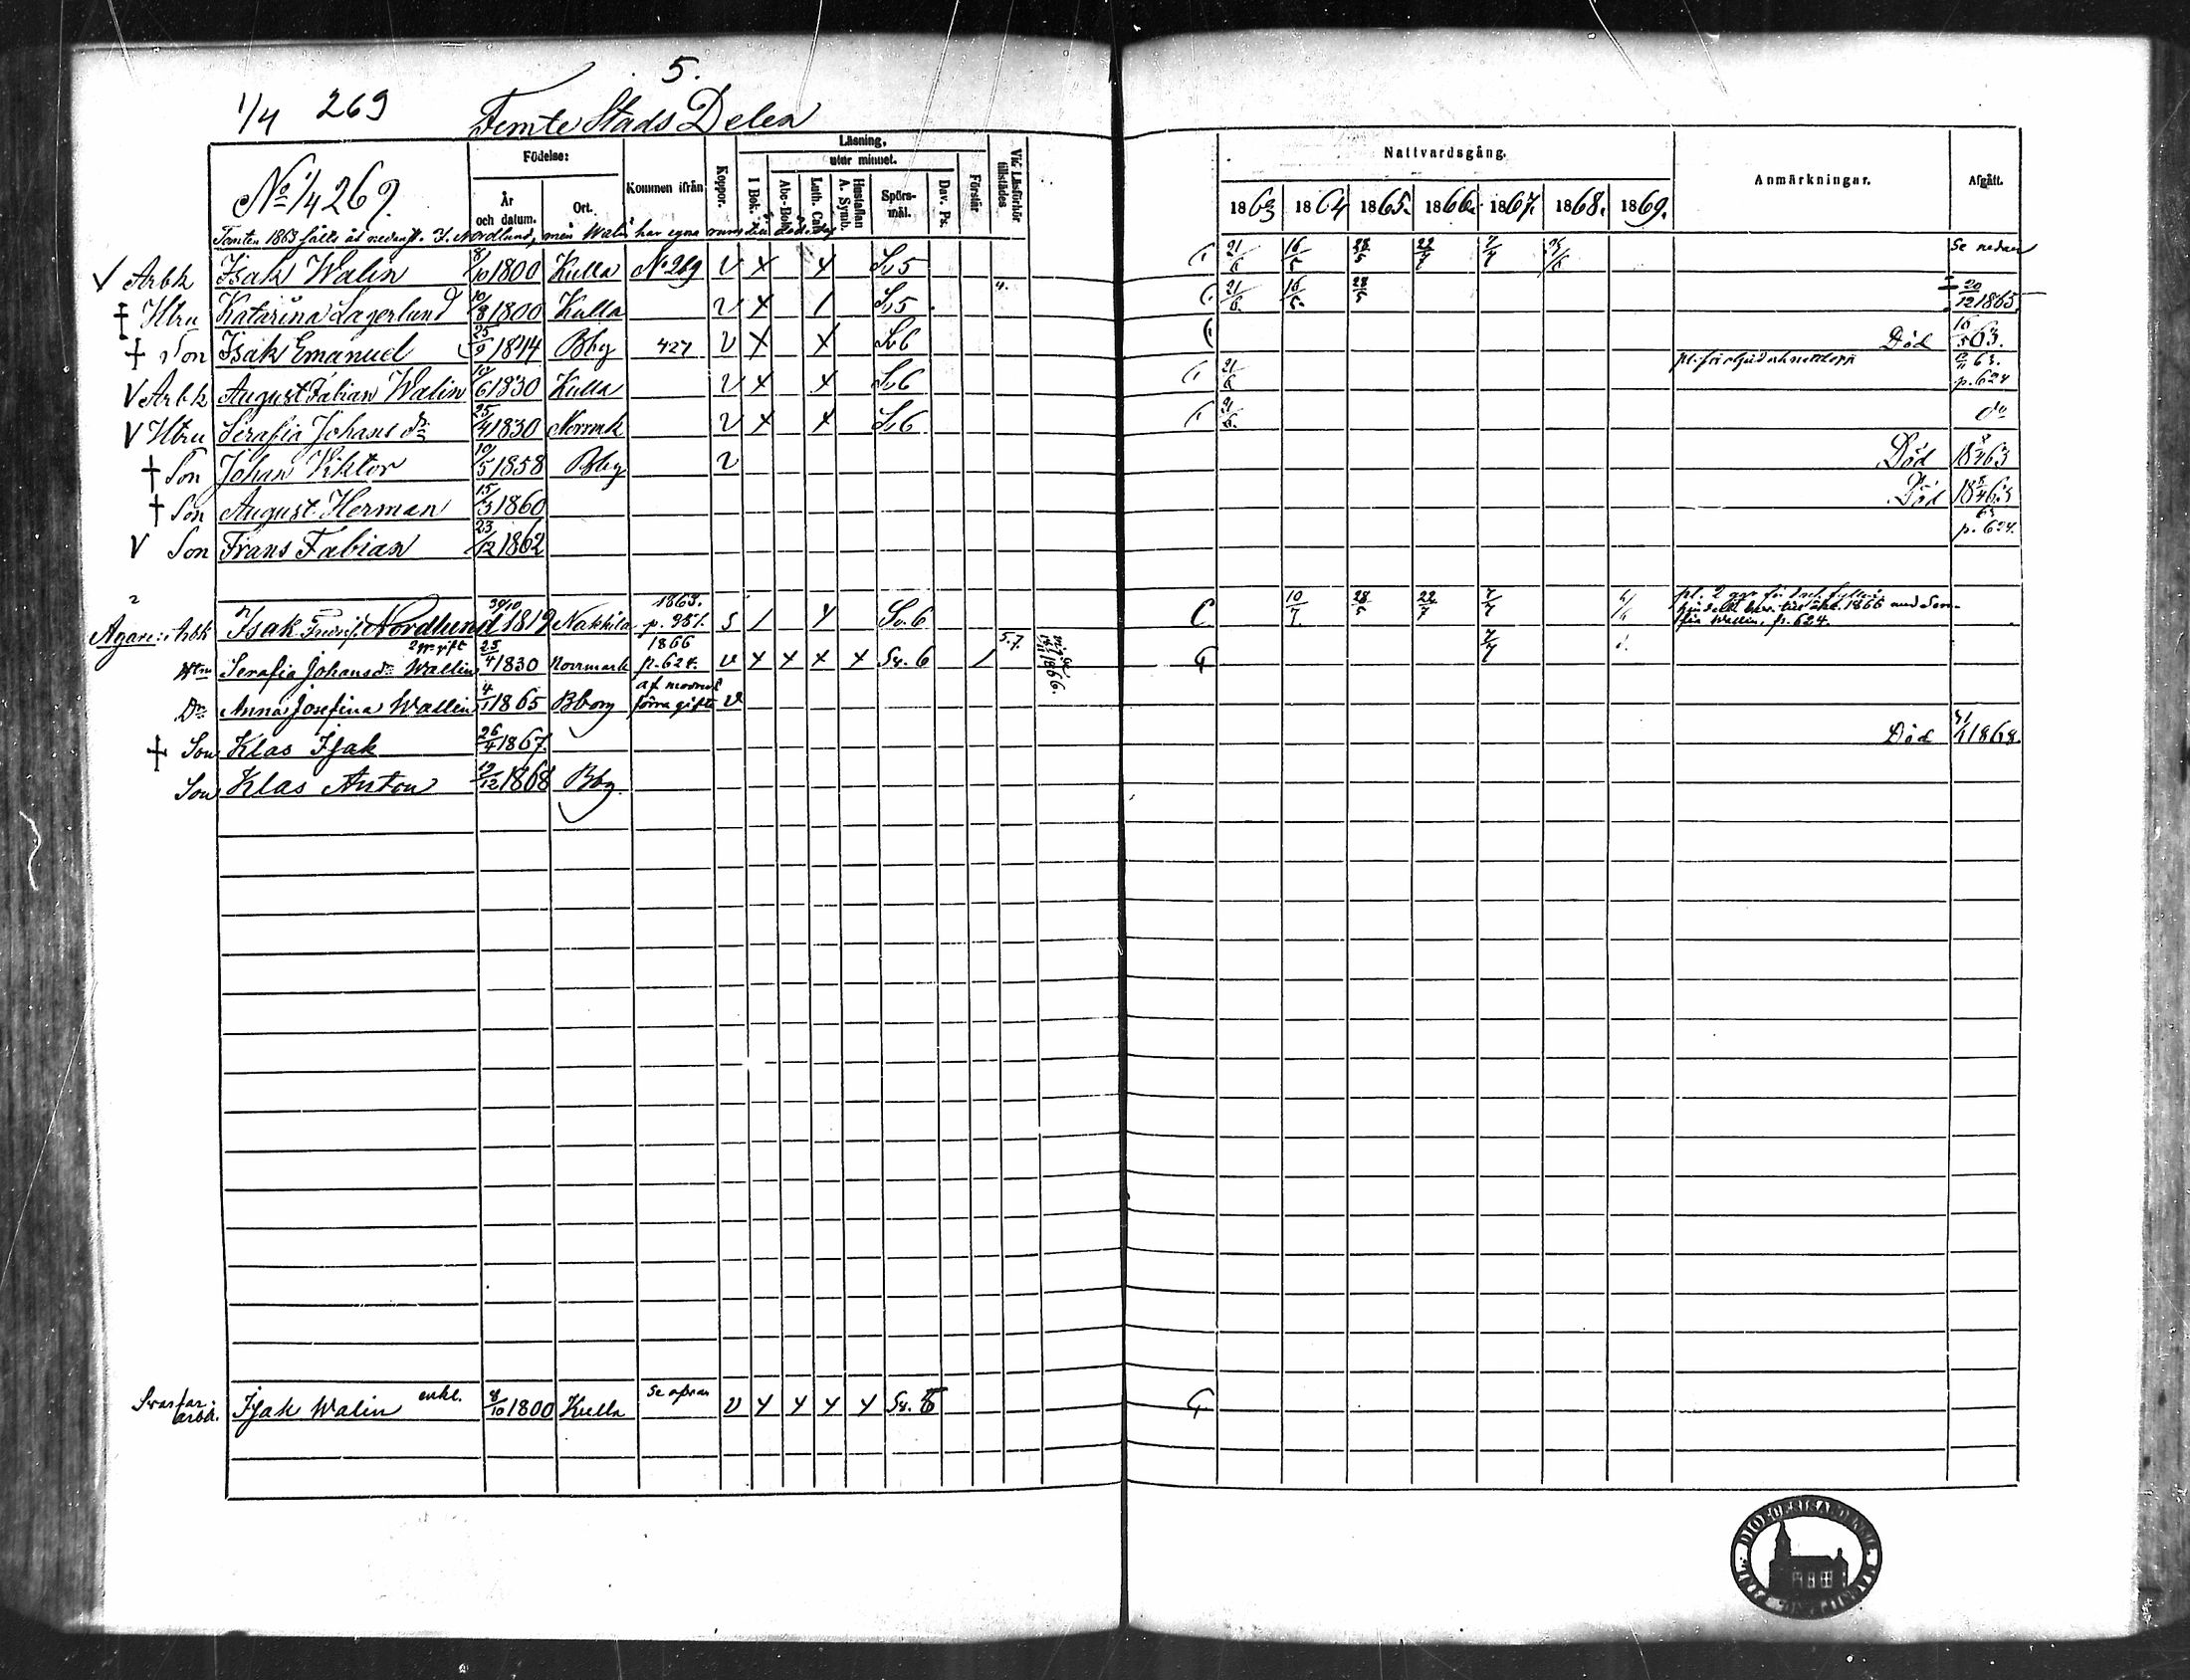 5.
1/4 269 Femte Stads Delen
No 1/4 269.
Födelse: År och datum. Ort. Kommen ifrån Koppor. Läsning, I Bok. utur minnet. Abc-Bok. Luth. Cat. Hustaflan A. Symb. Spörsmål. Dav. Ps. Förstår Vid Läsförhör tillstädes
Nattvardsgång. 1863 1864 1865. 1866. 1867. 1868. 1869. Anmärkningar. Afgått.
Tomten 1863 såld åt nedanst. I. Nordlund, men Walin har egna rum
V Arbk Isak Walin 8/10 1800 Kulla No 269 V X X Sv 5 21/6 16/5 28/5 22/7 7/7 Se nedan
‡ Htru Katarina Lagerlund 10/8 1800 Kulla V X / Sv 5 4. 21/6. 16/5. 28/5 ‡ 20/12 1865
† Son Isak Emanuel 25/9 1844 Bbg 427 V X X Sv 6 Död 16/5 63.
V Arbk August Fabian Walin 10/6 1830 Kulla V X X Sv 6 21/6 63. p. 624
V Htru Serafia Johans dr 25/4 1830 Norrmk V X X Sv 6 21/6. do
† Son Johan Viktor 10/5 1858 Bbg V Död 18 8/4 63
† Son August Herman 15/3 1860 Död 18 8/4 63
V Son Frans Fabian 23/12 1862 63 p. 624.
Ägare: Arbk Isak Fredrik Nordlund 30/10 1819 Nakkila 1863. p. 951. S / X Sv. 6 10/7. 28/5 22/7 7/7 pl. 2 ggr för fylleri 1866 med Serafia Wallin, p. 624.
Htru Serafia Johansdr Wallin 2 gg gift 25/4 1830 Norrmark 1866 p. 624. V X X X X Sv. 6 / 5.7. 1866. 7/7
Dr Anna Josefina Wallin 4/1 1865 Bborg af modrens förra gifte V
† Son Klas Isak 26/4 1867 Död 1868.
Son Klas Anton 19/12 1868 Bbg.
Svärfar: arbk. Isak Walin enkl. 8/10 1800 Kulla Se ofvan V X X X X Sv. 5